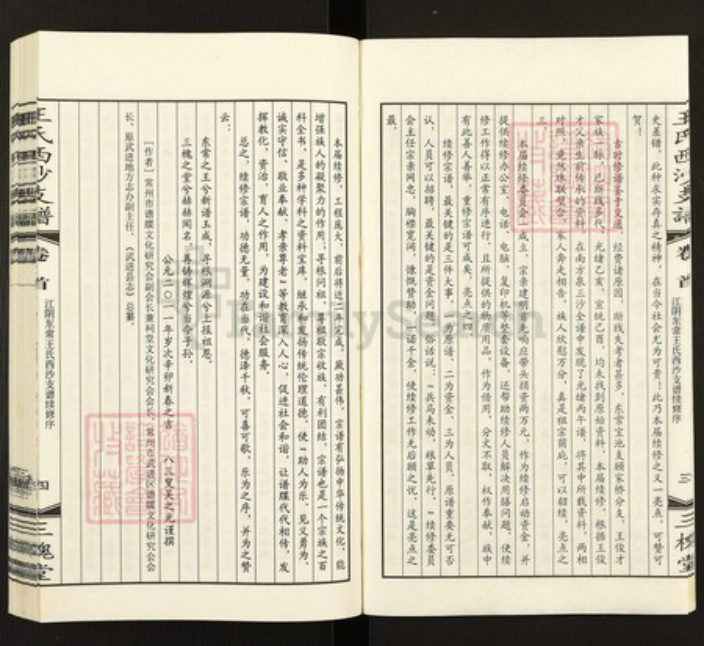 史差错，此种求实存真之精神，在当今社会尤为可贵！此乃本届续修之又一亮点，可赞可
贺！
古时修谱鉴于交通、经费诸原因，断线失考者甚多，东常宝池支顾家桥分支，王俊才
家族一脉，已断线多代，光绪乙亥、宣统己酉，均未找到原始资料。本届续修，根据王俊
才父亲生前传承的资料，在南方泉三沙全谱中发现了光绪丙午谱，将其中所载资料，两相
对照，竟然珠联璧合，家人奔走相告，族人欣慰万分，真是祖宗荫庇，可以韶续。亮点之
三。
本届续修委员会一成立，宗亲建明首先响应带头捐资两万元，作为续修启动资金，并
提供续修办公室、电话、电脑、复印机等整套设备，还帮助续修人员解决用膳问题，使续
修工作得以正常有序进行，且所提供的物质用品，作为借用，分文不取，权作奉献，族中
有此善人善举，重修宗谱可成矣。亮点之四。
续修宗谱，最关键的是三件大事，一为原谱，二为资金，三为人员，原谱重要无可否
认，人员可以招聘，最关键的是资金问题，俗话说：“兵马未动，粮草先行。”续修委员
会主任宗亲网忠，胸襟宽阔，慷慨赞助，一诺千金，使续修工作无后顾之忧，这是亮点之
最。
王氏西沙支谱
卷首
江阴东常王氏西沙支谱续修序
三
三槐堂
本届续修，工程庞大，前后将近二年完成，厥功甚伟。宗谱有弘扬中华传统文化，能
增强族人的凝聚力的作用；寻根问祖，尊祖敬宗收族，有利团结，宗谱也是一个宗族之百
科全书，是多种学科之资料宝库，继承和发扬传统伦理道德，使“助人为乐、见义勇为、
诚实守信、敬业奉献、孝亲尊老”等教育深入人心，促进社会和谐，让谱牒代代相传，发
挥教化、资治、育人之作用，为建设和谐社会服务。
总之，续修宗谱，功德无量，功在当代，德泽千秋，可喜可歌，乐为之序，并为之赞
云：
东常之王兮新谱玉成，寻根溯源兮上报祖恩。
三槐之堂兮赫赫闻名，再铸辉煌兮当今子孙。
公元二〇一一年岁次辛卯新春之吉　八三叟吴之光谨撰
［作者］常州市谱牒文化研究会副会长兼祠堂文化研究会会长、常州市武进区谱牒文化研究会会
长、原武进地方志办副主任、《武进县志》总纂。
王氏西沙支谱
卷首
江阴东常王氏西沙支谱续修序
四
三槐堂
FamilySearch